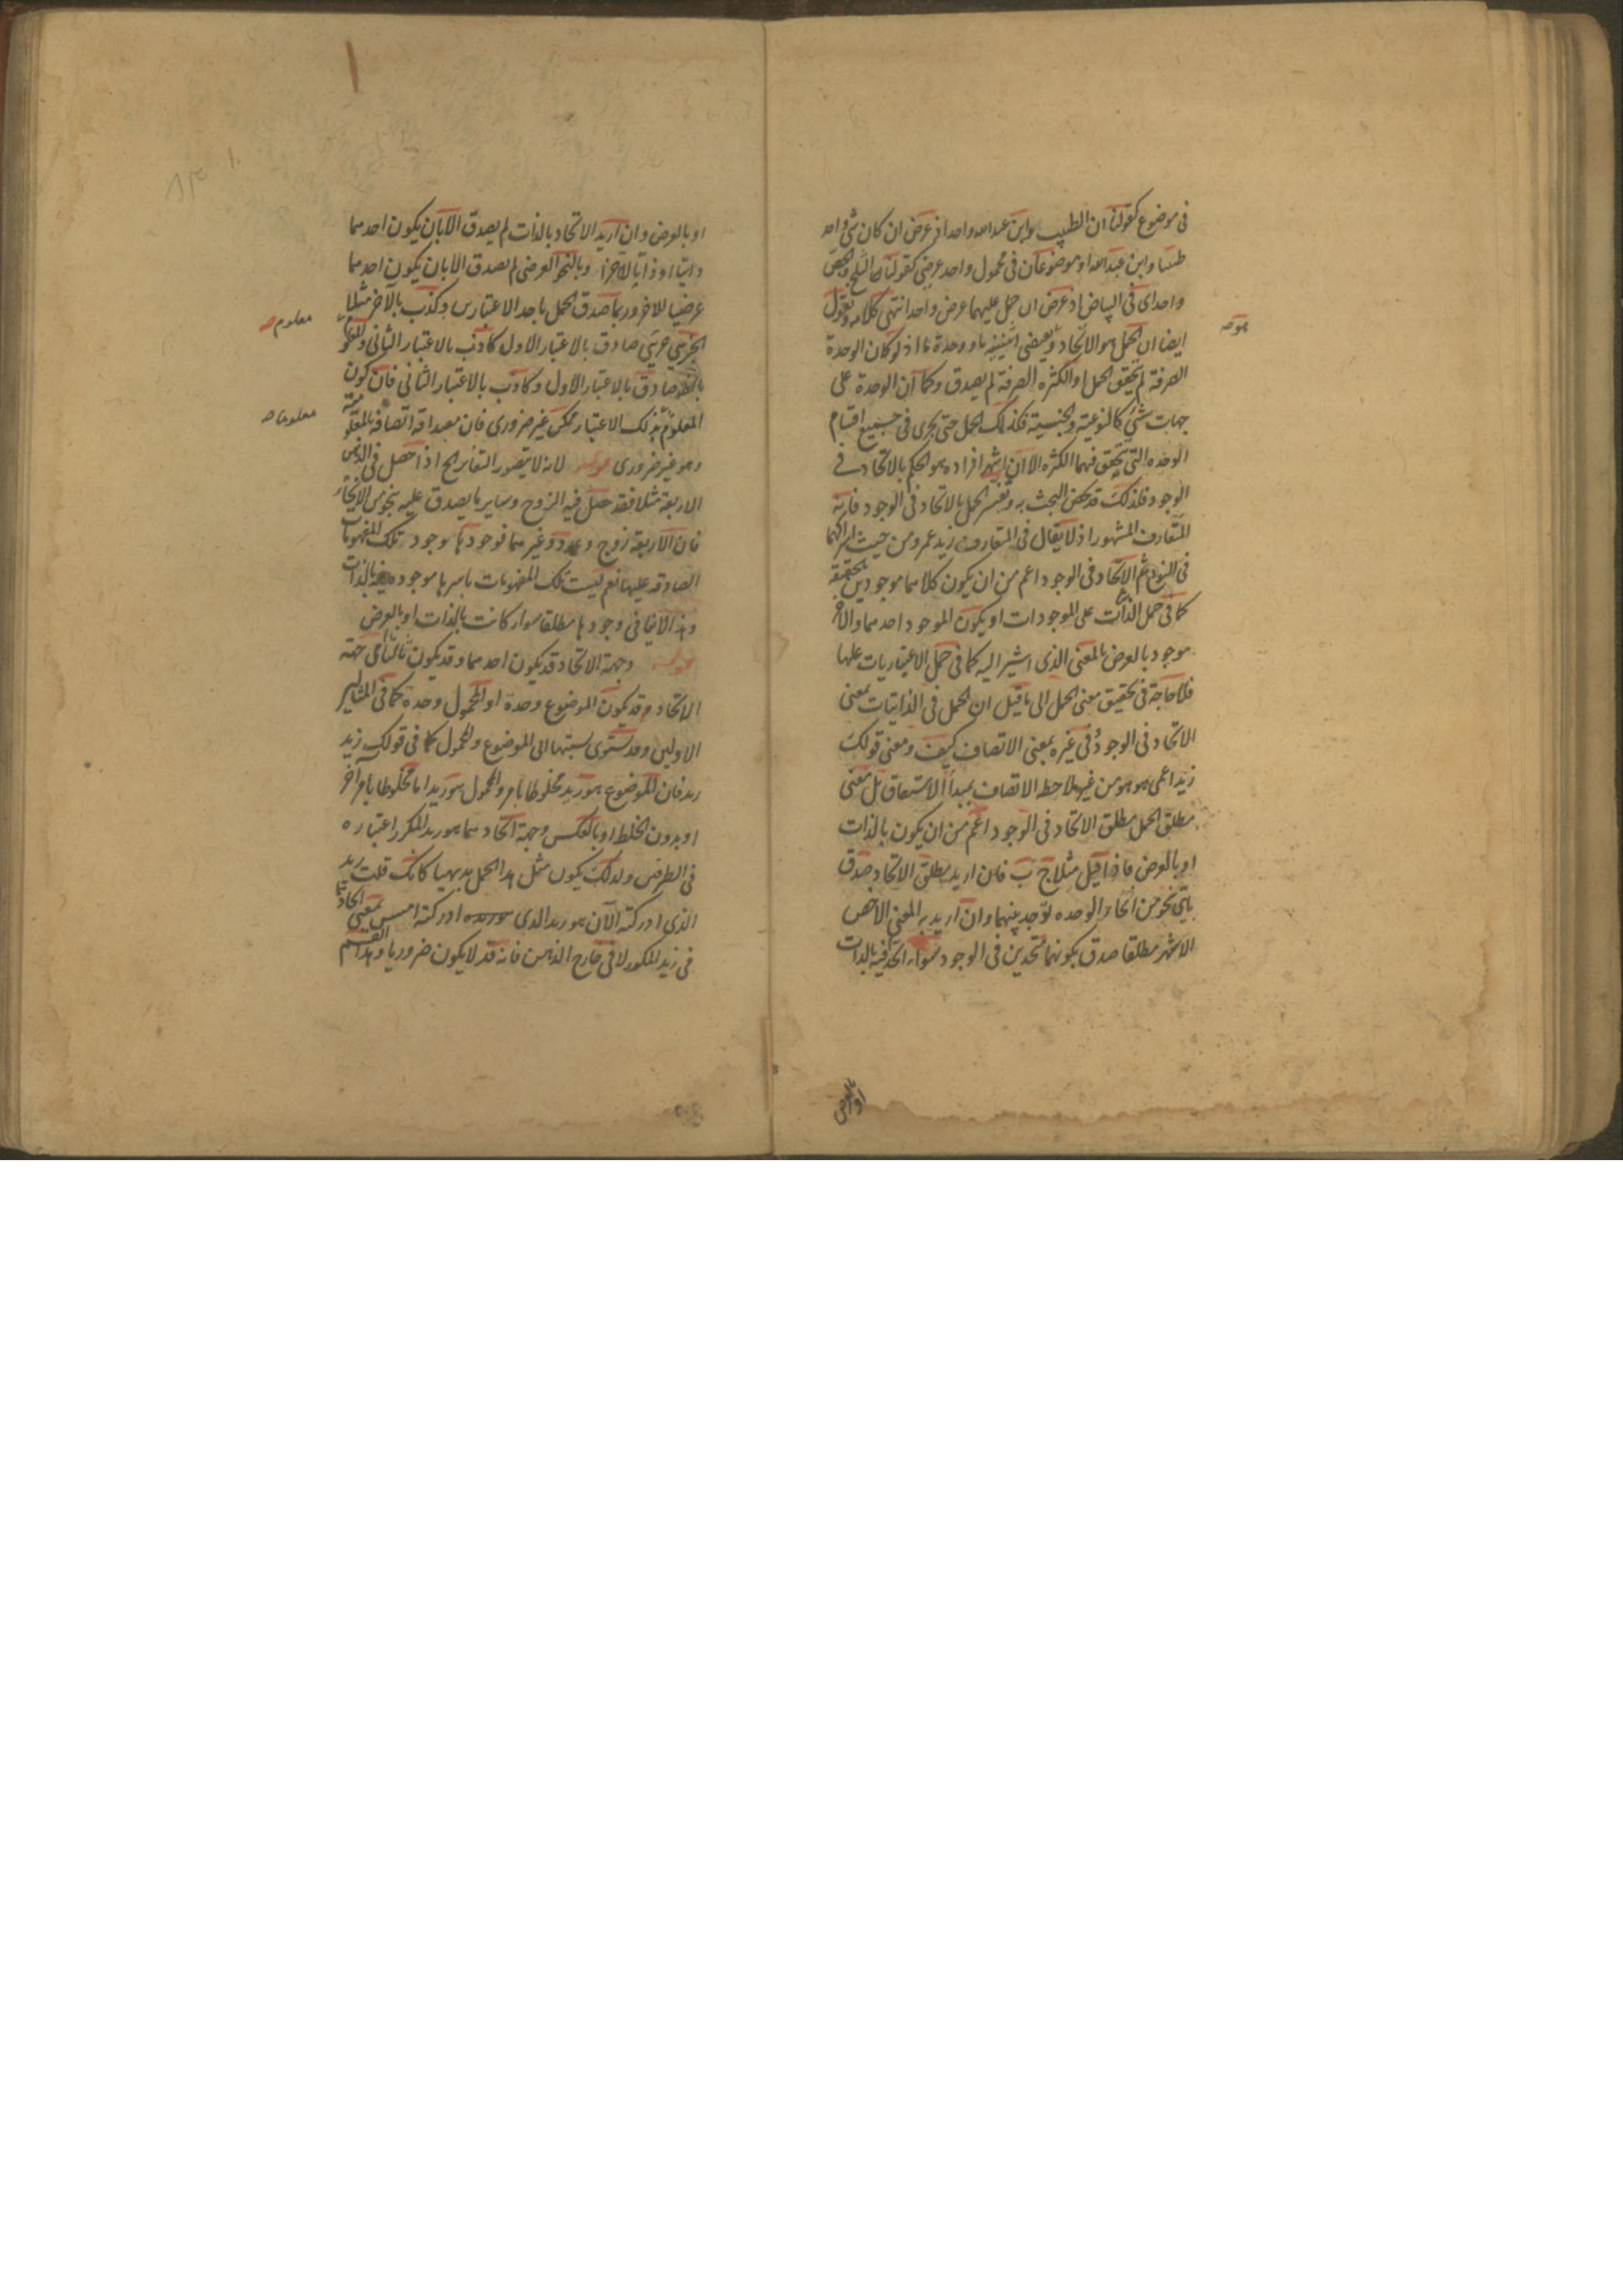 فى موضوع كقولنا ان الطبيب وابن عبدالله واحد اذ عرض ان كان شئ واحد
طبيبا وابن عبدالله او موضوعان فى محمول واحد عرضى كقولنا ان الثلج والجص
واحد اى فى البياض اذ عرض ان حمل عليهما عرض واحد انتهى كلامه ونقول
ايضا ان الحمل هو الاتحاد ويقتضى اثنينية ما ووحدة ما اذ لو كان الوحدة
هو صه
الصرفة لم يتحقق الحمل او الكثرة الصرفة لم يصدق وكما ان الوحدة على
جهات شتى كالنوعية والجنسية فكذلك الحمل حتى يجرى فى جميع اقسام
الوحدة التى يتحقق فيها الكثرة الا ان اشهر افراده هو الحكم بالاتحاد فى
الوجود فلذلك قد خص البحث به وتفسير الحمل بالاتحاد فى الوجود فانه
المتعارف المشهور اذ لا يقال فى المتعارف زيد عمرو من حيث اشتراكهما
فى النوع ثم الاتحاد فى الوجود اعم من ان يكون كلاهما موجودين حقيقة
كما فى حمل الذات على الموجودات او يكون الموجود احدهما والاخر
موجود بالعرض بالمعنى الذى اشير اليه كما فى حمل الاعتباريات عليها
فلا حاجة فى تحقيق معنى الحمل الى ما قيل ان الحمل فى الذاتيات بمعنى
الاتحاد فى الوجود وفى غيره بمعنى الاتصاف كيف ومعنى قولك
زيد اعمى هو هو من غير ملاحظة الاتصاف بمبدأ الاشتقاق بل معنى
مطلق الحمل مطلق الاتحاد فى الوجود اعم من ان يكون بالذات
او بالعرض فاذا قيل مثلا ج ب فان اريد مطلق الاتحاد صدق
باى نحو من انحاء الوحدة توجد بينهما وان اريد به المعنى الاخص
الاشهر مطلقا صدق بكونهما متحدين فى الوجود سواء اتحدا فيه بالذات
او بالعرض
او بالعرض وان اريد الاتحاد بالذات لم يصدق الا بان يكون احدهما
ذاتيا او ذاتيا للآخر وبالنحو العرضى لم يصدق الا بان يكون احدهما
عرضيا للاخر وربما صدق الحمل باحد الاعتبارين وكذب بالآخر مثلا
معلوم صه
الجزئى جزئى صادق بالاعتبار الاول كاذب بالاعتبار الثانى
صادق بالاعتبار الاول وكاذب بالاعتبار الثانى فان كون
المعلوم بذلك الاعتبار ممكن غير ضرورى فان مصداقه اتصافه بالمعلومية
معلوما صه
وهو غير ضرورى قوله لانه لا يتصور التغاير الخ اذا حصل فى الذهن
الاربعة مثلا فقد حصل فيه الزوج وساير ما يصدق عليه بنحو من الانحاء
فان الاربعة زوج وعدد وغيرهما فوجودها وجود تلك المفهومات
الصادقة عليها نعم ليست تلك المفهومات باسرها موجودة فيه بالذات
وهذا لا ينافى وجودها مطلقا سواء كانت بالذات او بالعرض
قوله وجهة الاتحاد قد يكون احدهما وقد يكون ثالثا اى جهة
الاتحاد قد يكون الموضوع وحده او المحمول وحده كما فى المثالين
الاولين وقد يستوى نسبتها الى الموضوع والمحمول كما فى قولك زيد
زيد فان الموضوع هو زيد مخلوطا بامر والمحمول هو زيد اما مخلوطا بامر آخر
او بدون الخلط او بالعكس وجهة اتحادهما هو زيد المكرر اعتباره
فى الطرفين ولذلك يكون مثل هذا الحمل بديهيا كانك قلت زيد
الذى ادركته الآن هو زيد الذى ادركته امس بمعنى اتحادهما
فى زيد المكرر لا فى خارج الذهن فانه قد لا يكون ضروريا وهذا القسم